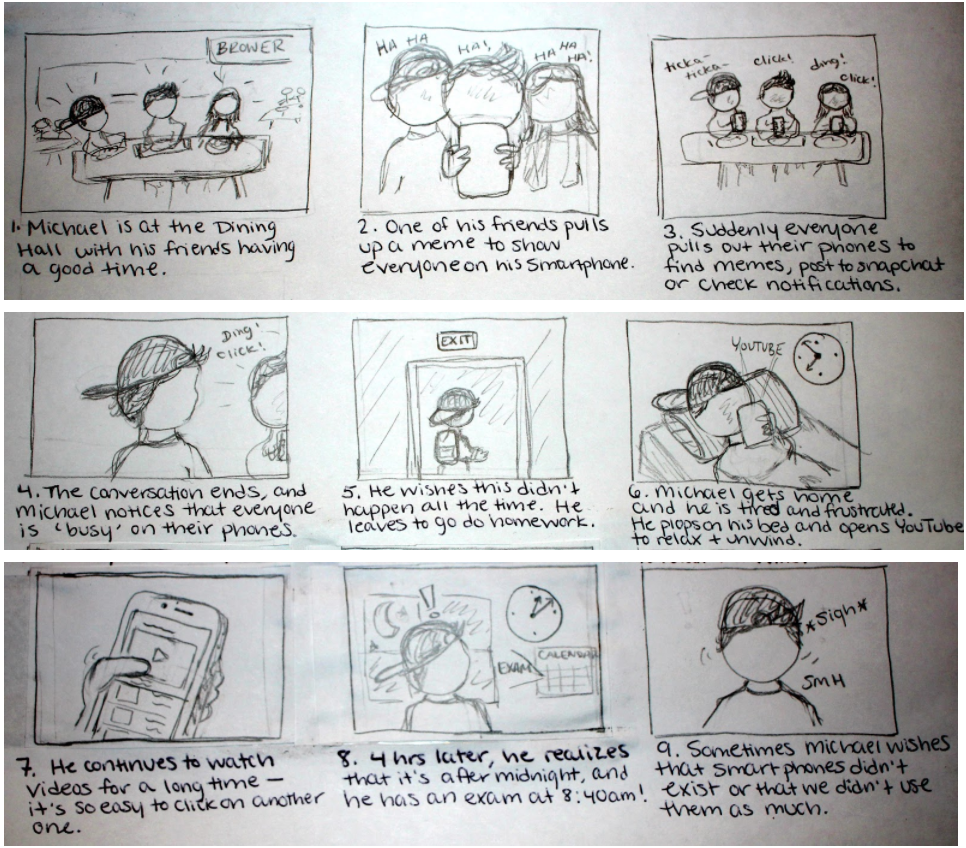 BROWER
1. Michael is at the Dining
Hall with his friends having
a good time.
HA HA
HA!,
HA HA
HA!
2. One of his friends pulls
up a meme to show
everyone on his smartphone.
ticka-
ticka-
click!
ding!
click!
3. Suddenly everyone
pulls out their phones to
find memes, post to snapchat
or check notifications.
Ding!
click!
4. The conversation ends, and
michael notices that everyone
is 'busy' on their phones.
EXIT
5. He wishes this didn't
happen all the time. He
leaves to go do homework.
YOUTUBE
6. Michael gets home
and he is tired and frustrated.
He plops on his bed and opens YouTube
to relax + unwind.
7. He continues to watch
videos for a long time —
it's so easy to click on another
one.
!
EXAM
CALENDAR
8. 4 hrs later, he realizes
that it's after midnight, and
he has an exam at 8:40am!
*sigh*
SMH
9. Sometimes michael wishes
that smartphones didn't
exist or that we didn't use
them as much.